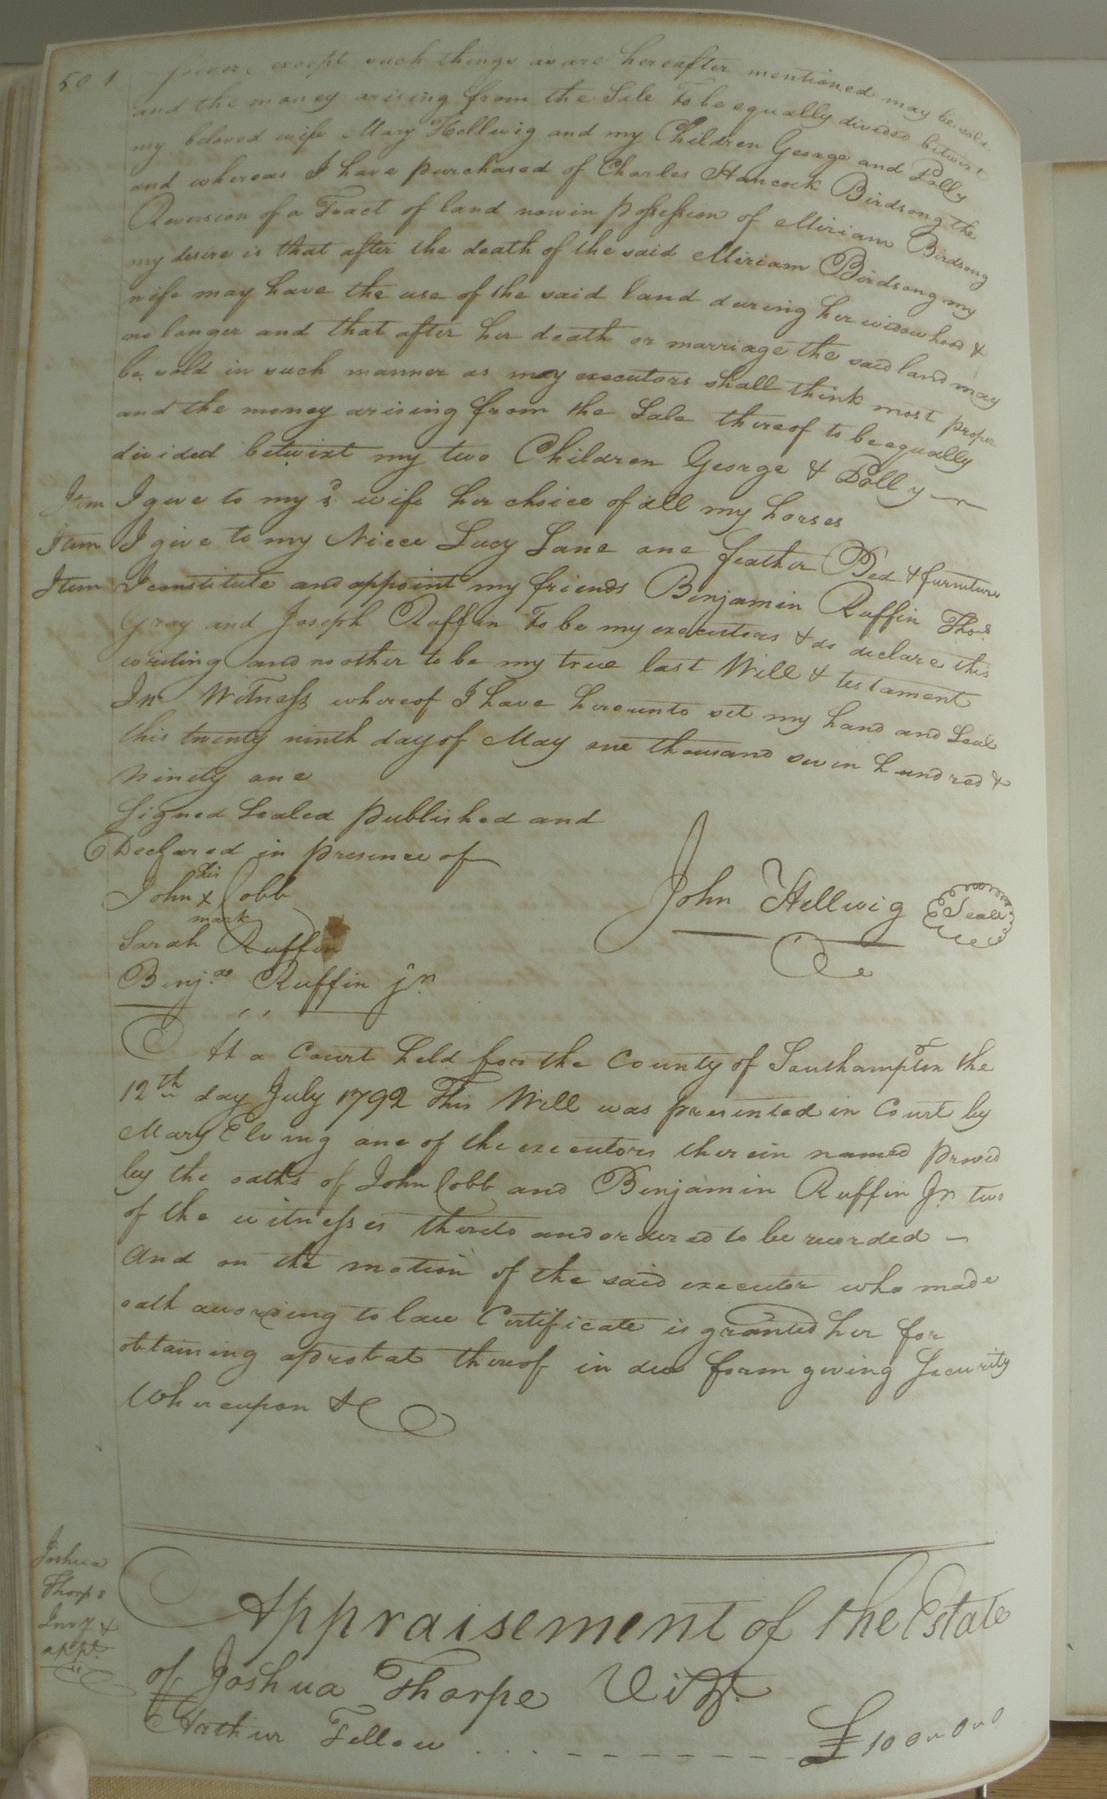 501
except such things as are hereafter mentioned may be sold
and the money arising from the Sale to be equally divided betwixt
my beloved wife Mary Hellwig and my Children George and Polly
and whereas I have purchased of Charles Hancock Birdsong the
Reversion of a Tract of land now in possession of Miriam Birdsong
my desire is that after the death of the said Miriam Birdsong my
wife may have the use of the said land during her widowhood &
no longer and that after her death or marriage the said land may
be sold in such manner as my executors shall think most proper
and the money arising from the Sale thereof to be equally
divided betwixt my two Children George & Polly
Item I give to my sd wife her choice of all my horses
Item I give to my Niece Lucy Lane one feather Bed & furniture
Item I constitute and appoint my friends Benjamin Ruffin Thos.
Gray and Joseph Ruffin to be my executors & do declare this
writing and no other to be my true last Will & testament
In Witness whereof I have hereunto set my hand and Seal
this twenty ninth day of May one thousand seven hundred &
Ninety one
Signed Sealed published and
Declared in presence of
his
John x Cobb
mark
John Hellwig Seal
Sarah Ruffin
Benja. Ruffin jr
At a Court held for the County of Southampton the
12th day July 1792 This Will was presented in Court by
Mary Elving one of the executors therein named proved
by the oaths of John Cobb and Benjamin Ruffin Jr. two
of the witnesses thereto and ordered to be recorded
And on the motion of the said executor who made
oath according to law Certificate is granted her for
obtaining a probat thereof in due form giving Security
Whereupon &c
Joshua
Thorpe
Invy &
appt.
Appraisement of the Estate
of Joshua Thorpe Vizt.
Arthur Fellow . . . - - - - - - - £100 " 0 " 0